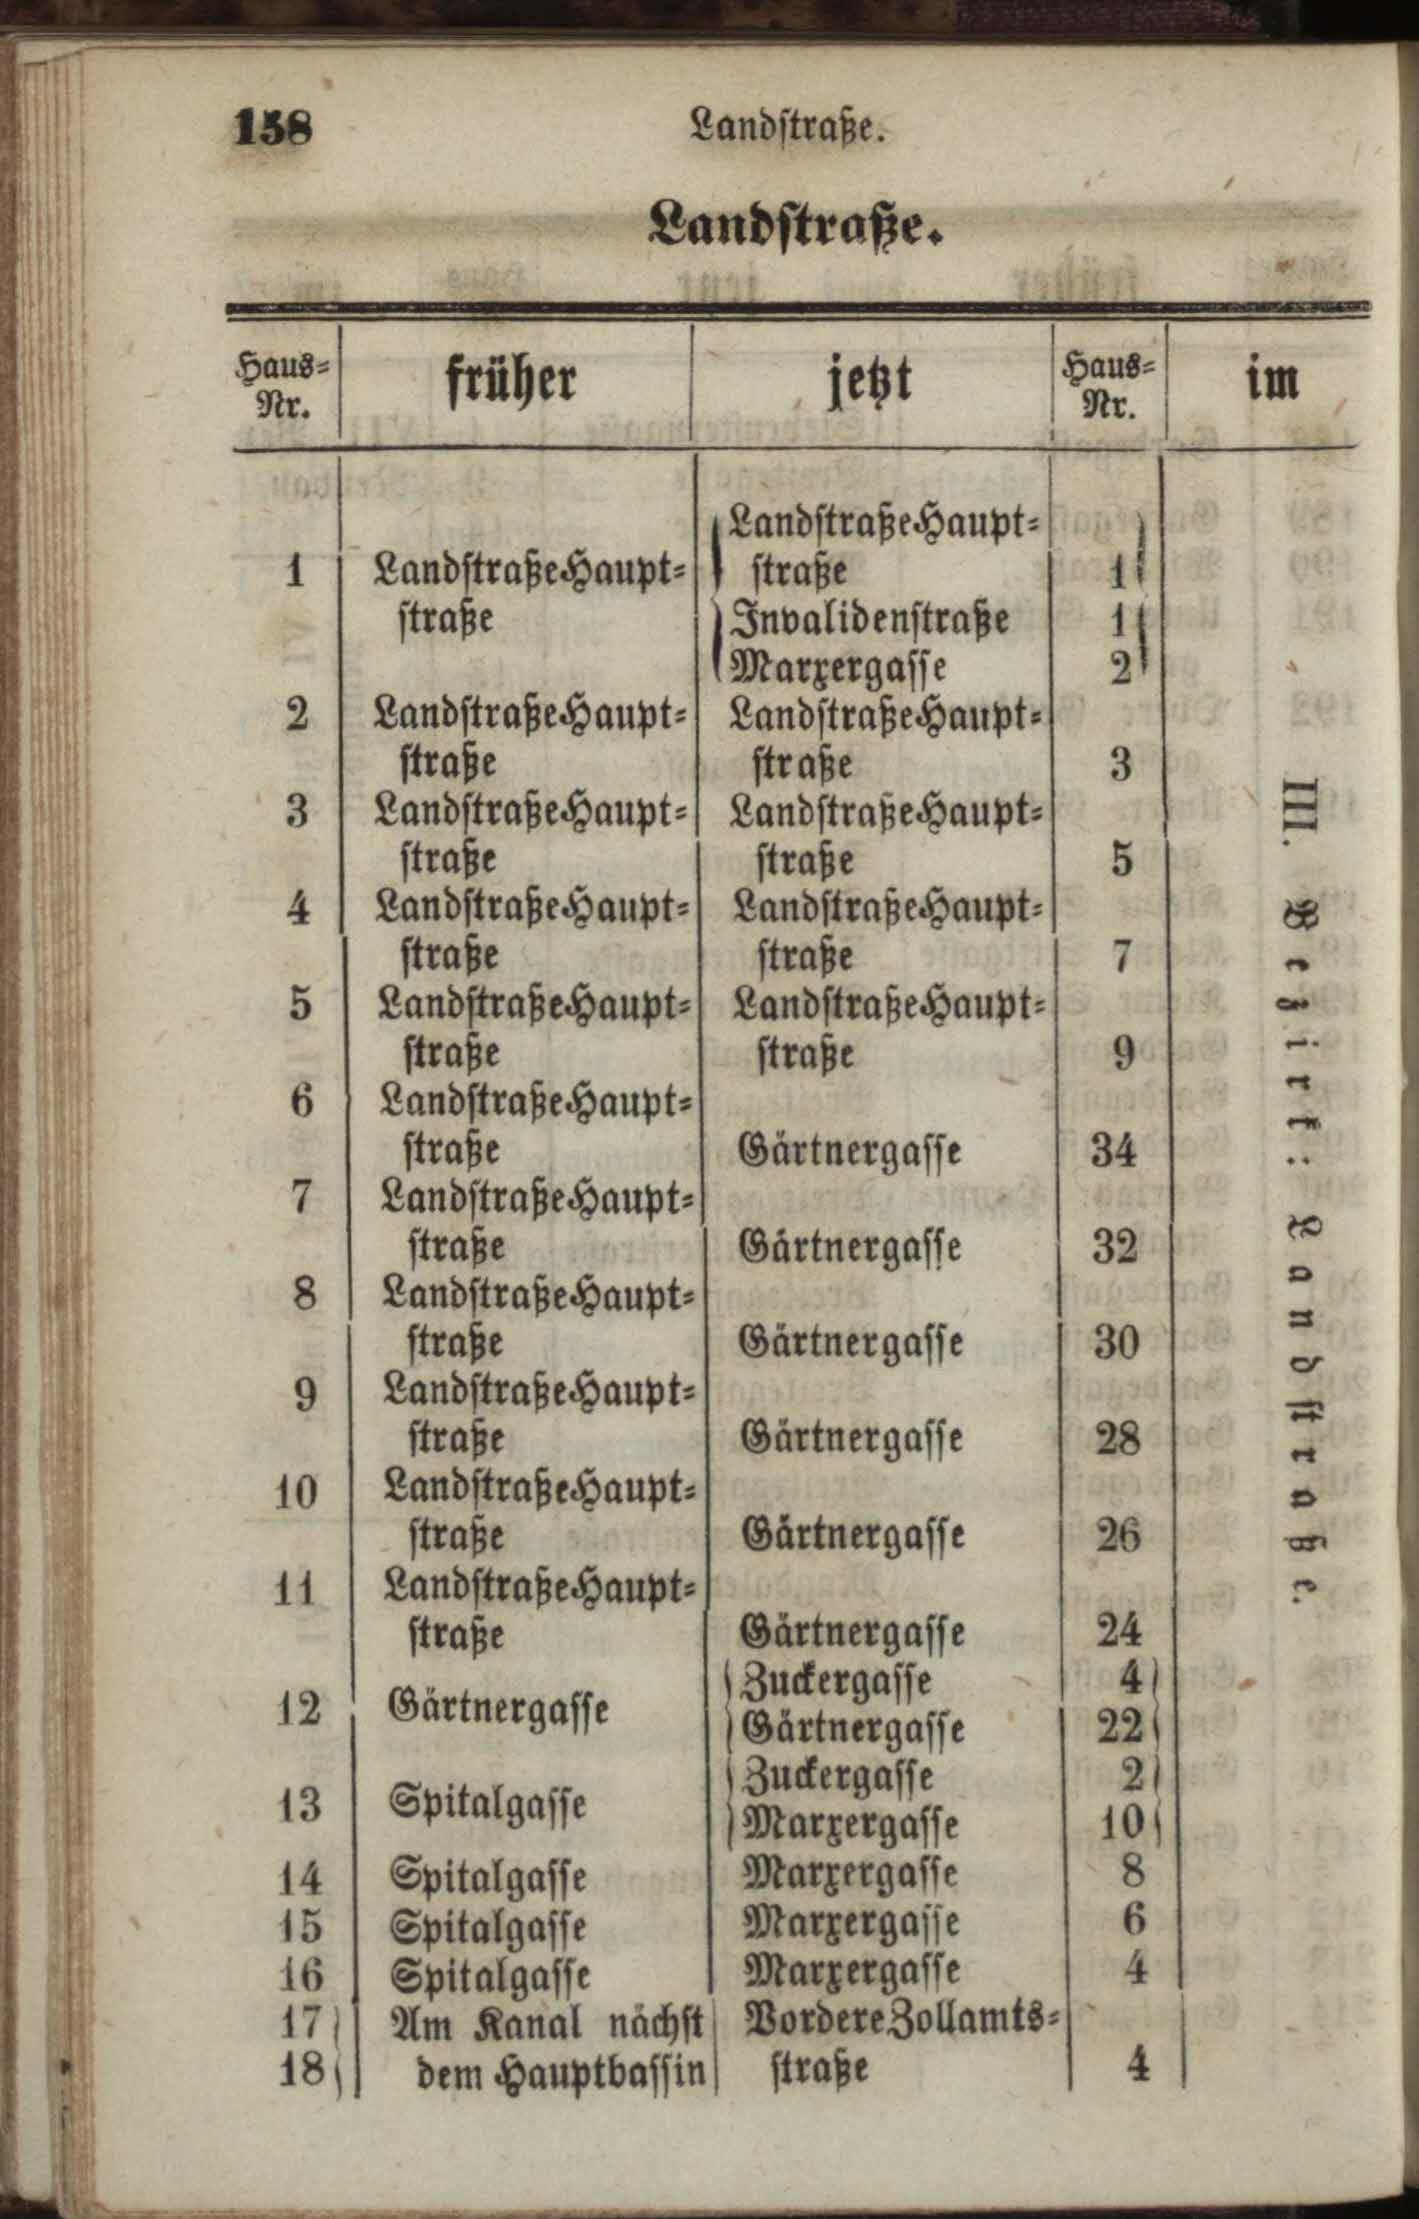 158 Landstraße.
Landstraße.
Haus= früher jetzt Haus= im
Nr. Nr.
LandstraßeHaupt=
1 LandstraßeHaupt= straße 1
straße Invalidenstraße 1
Marxergasse 2
2 LandstraßeHaupt= LandstraßeHaupt=
straße straße 3
3 LandstraßeHaupt= LandstraßeHaupt=
straße straße 5
4 LandstraßeHaupt= LandstraßeHaupt=
straße straße 7
5 LandstraßeHaupt= LandstraßeHaupt=
straße straße 9
6 LandstraßeHaupt=
straße Gärtnergasse 34
7 LandstraßeHaupt=
straße Gärtnergasse 32
8 LandstraßeHaupt=
straße Gärtnergasse 30
9 LandstraßeHaupt=
straße Gärtnergasse 28
10 LandstraßeHaupt=
straße Gärtnergasse 26
11 LandstraßeHaupt=
straße Gärtnergasse 24
Zuckergasse 4
12 Gärtnergasse
Gärtnergasse 22
Zuckergasse 2
13 Spitalgasse
Marxergasse 10
14 Spitalgasse Marxergasse 8
15 Spitalgasse Marxergasse 6
16 Spitalgasse Marxergasse 4
17 Am Kanal nächst VordereZollamts=
18 dem Hauptbassin straße 4
III. Bezirk: Landstraße.